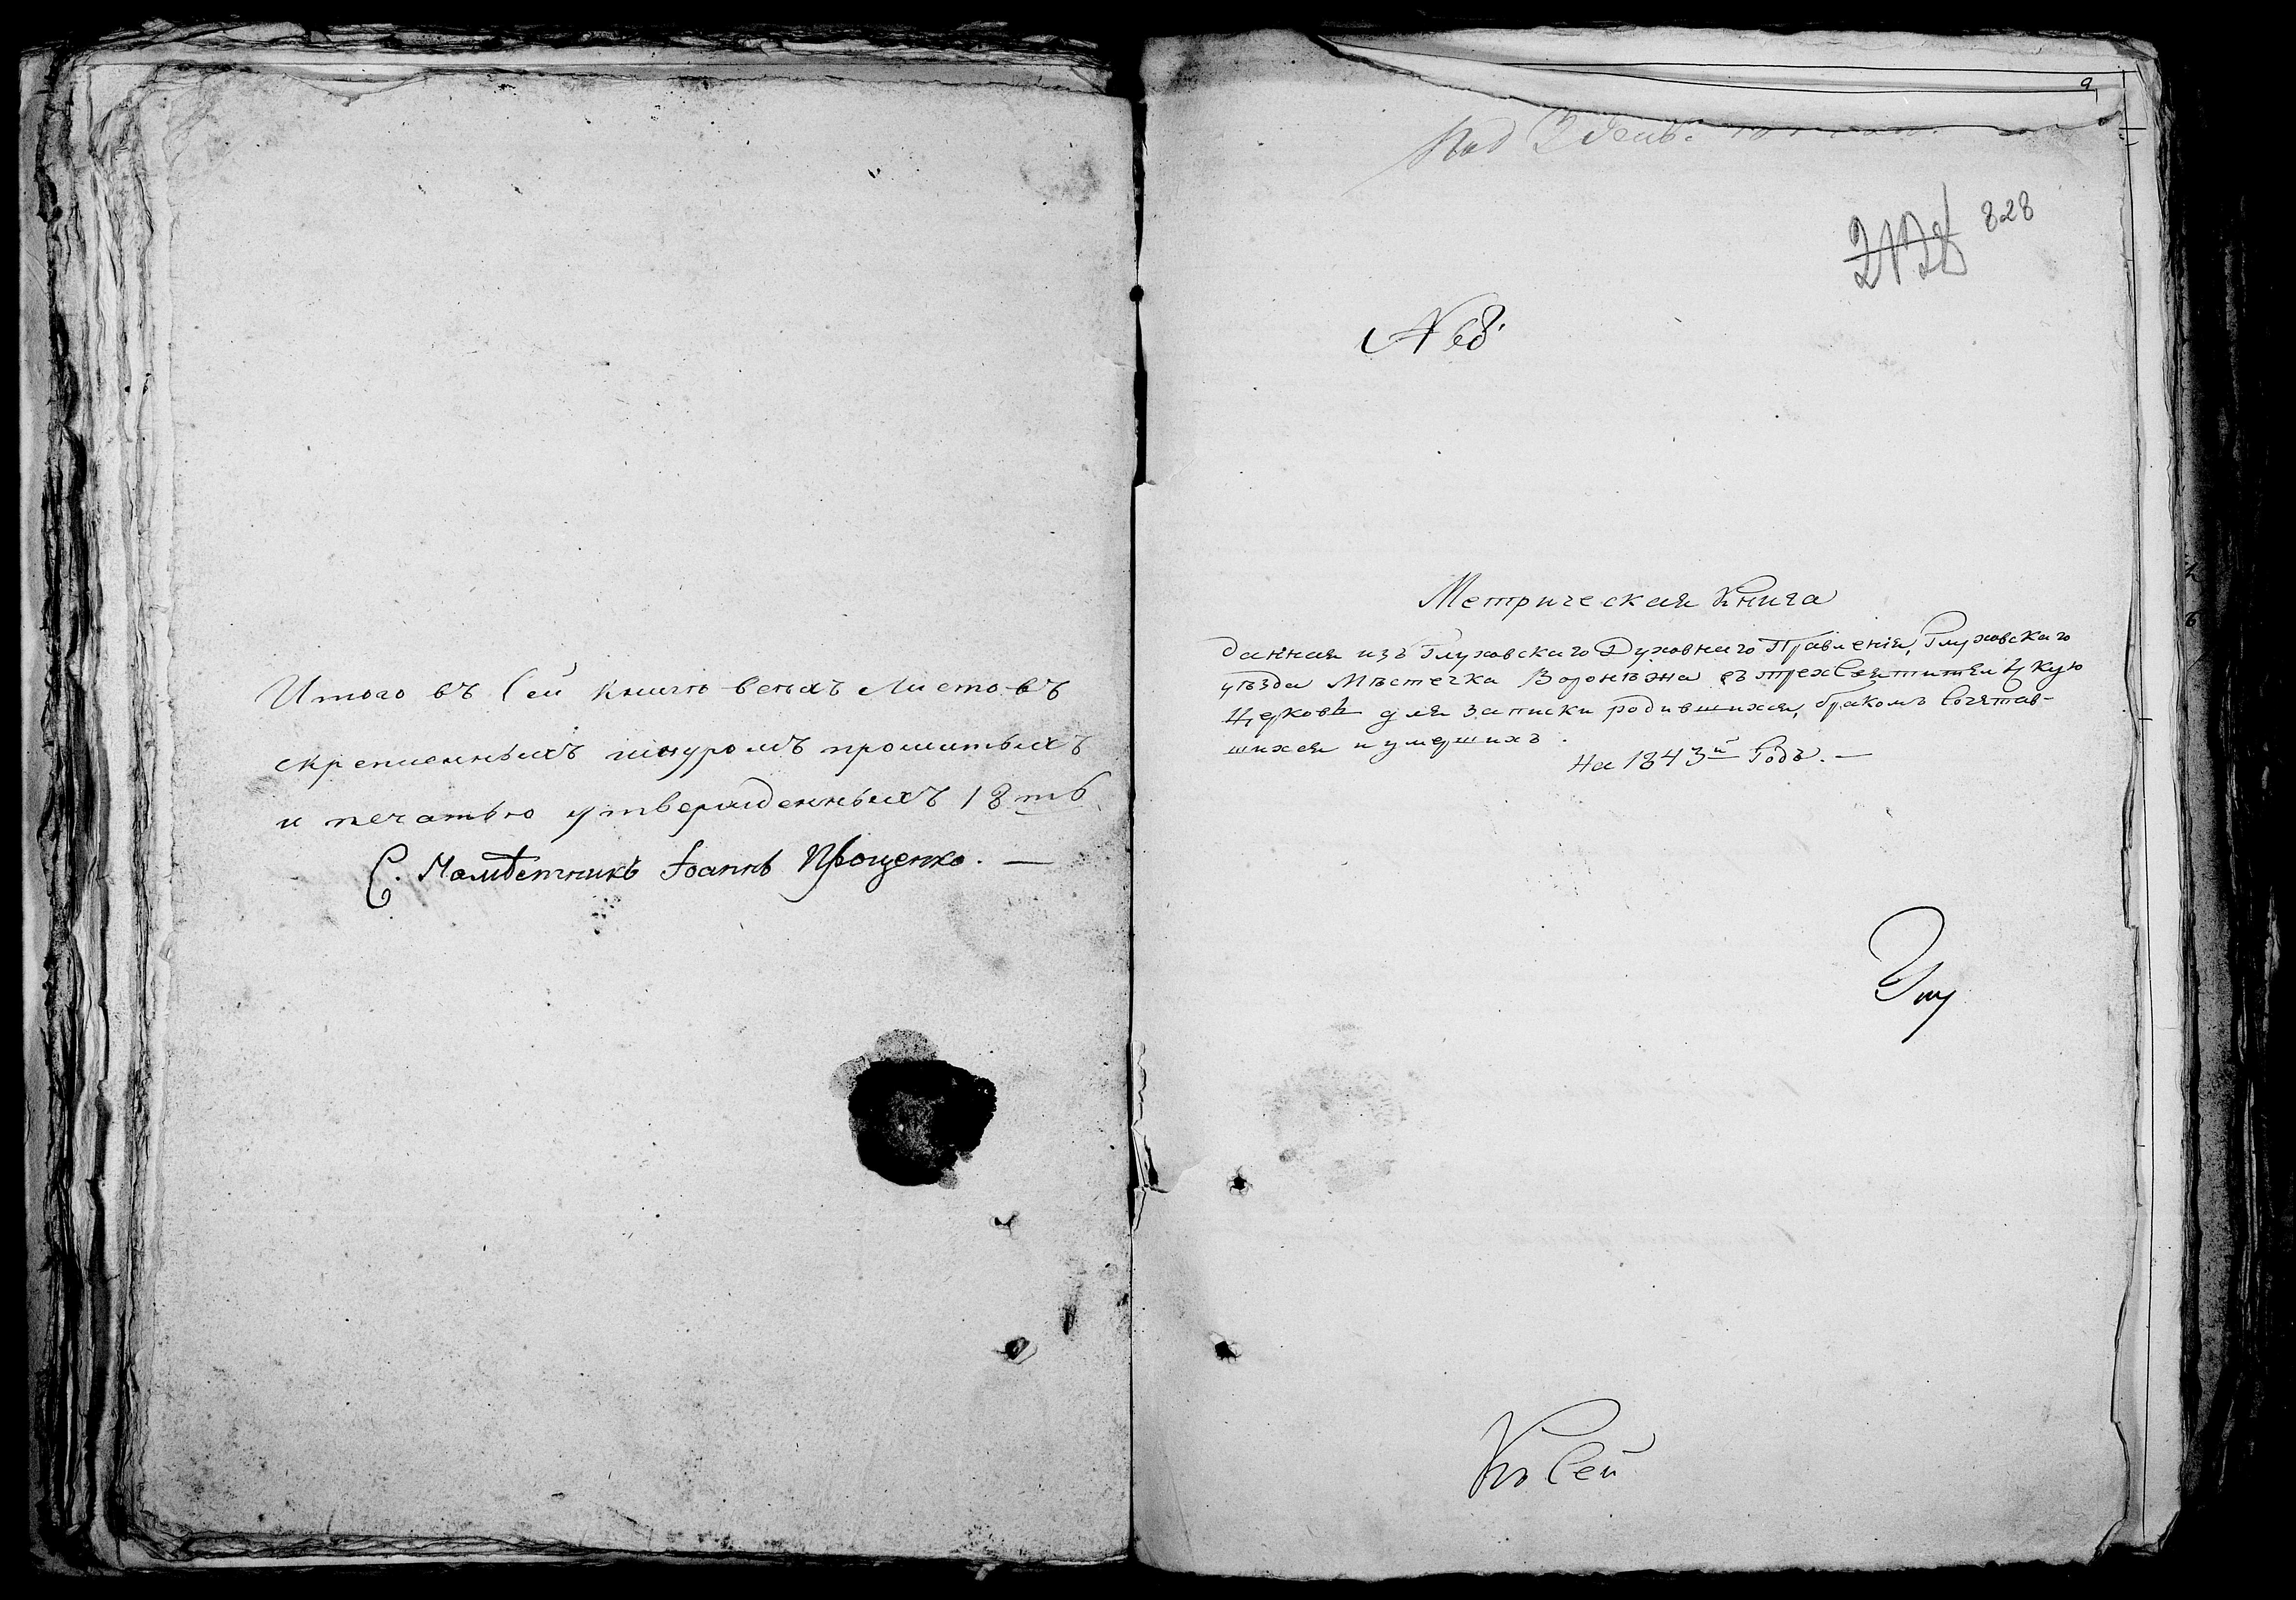 Итого въ Сей Книгѣ всехъ Листовъ
скрепленныхъ шнуромъ прошитыхъ
и печатью утвержденныхъ 18ть
С. Намѣстникъ Іоаннъ Проценко. —
Под
828
№ 8
Метрическая Книга
данная изъ Глуховскаго Духовнаго Правленія, Глуховскаго
уѣзда Мѣстечка Воронѣжа въ трехСвятительскую
Церковь для записки родившихся, бракомъ Сочетав-
шихся и умершихъ.
На 1843й Годъ. —
Къ Сей